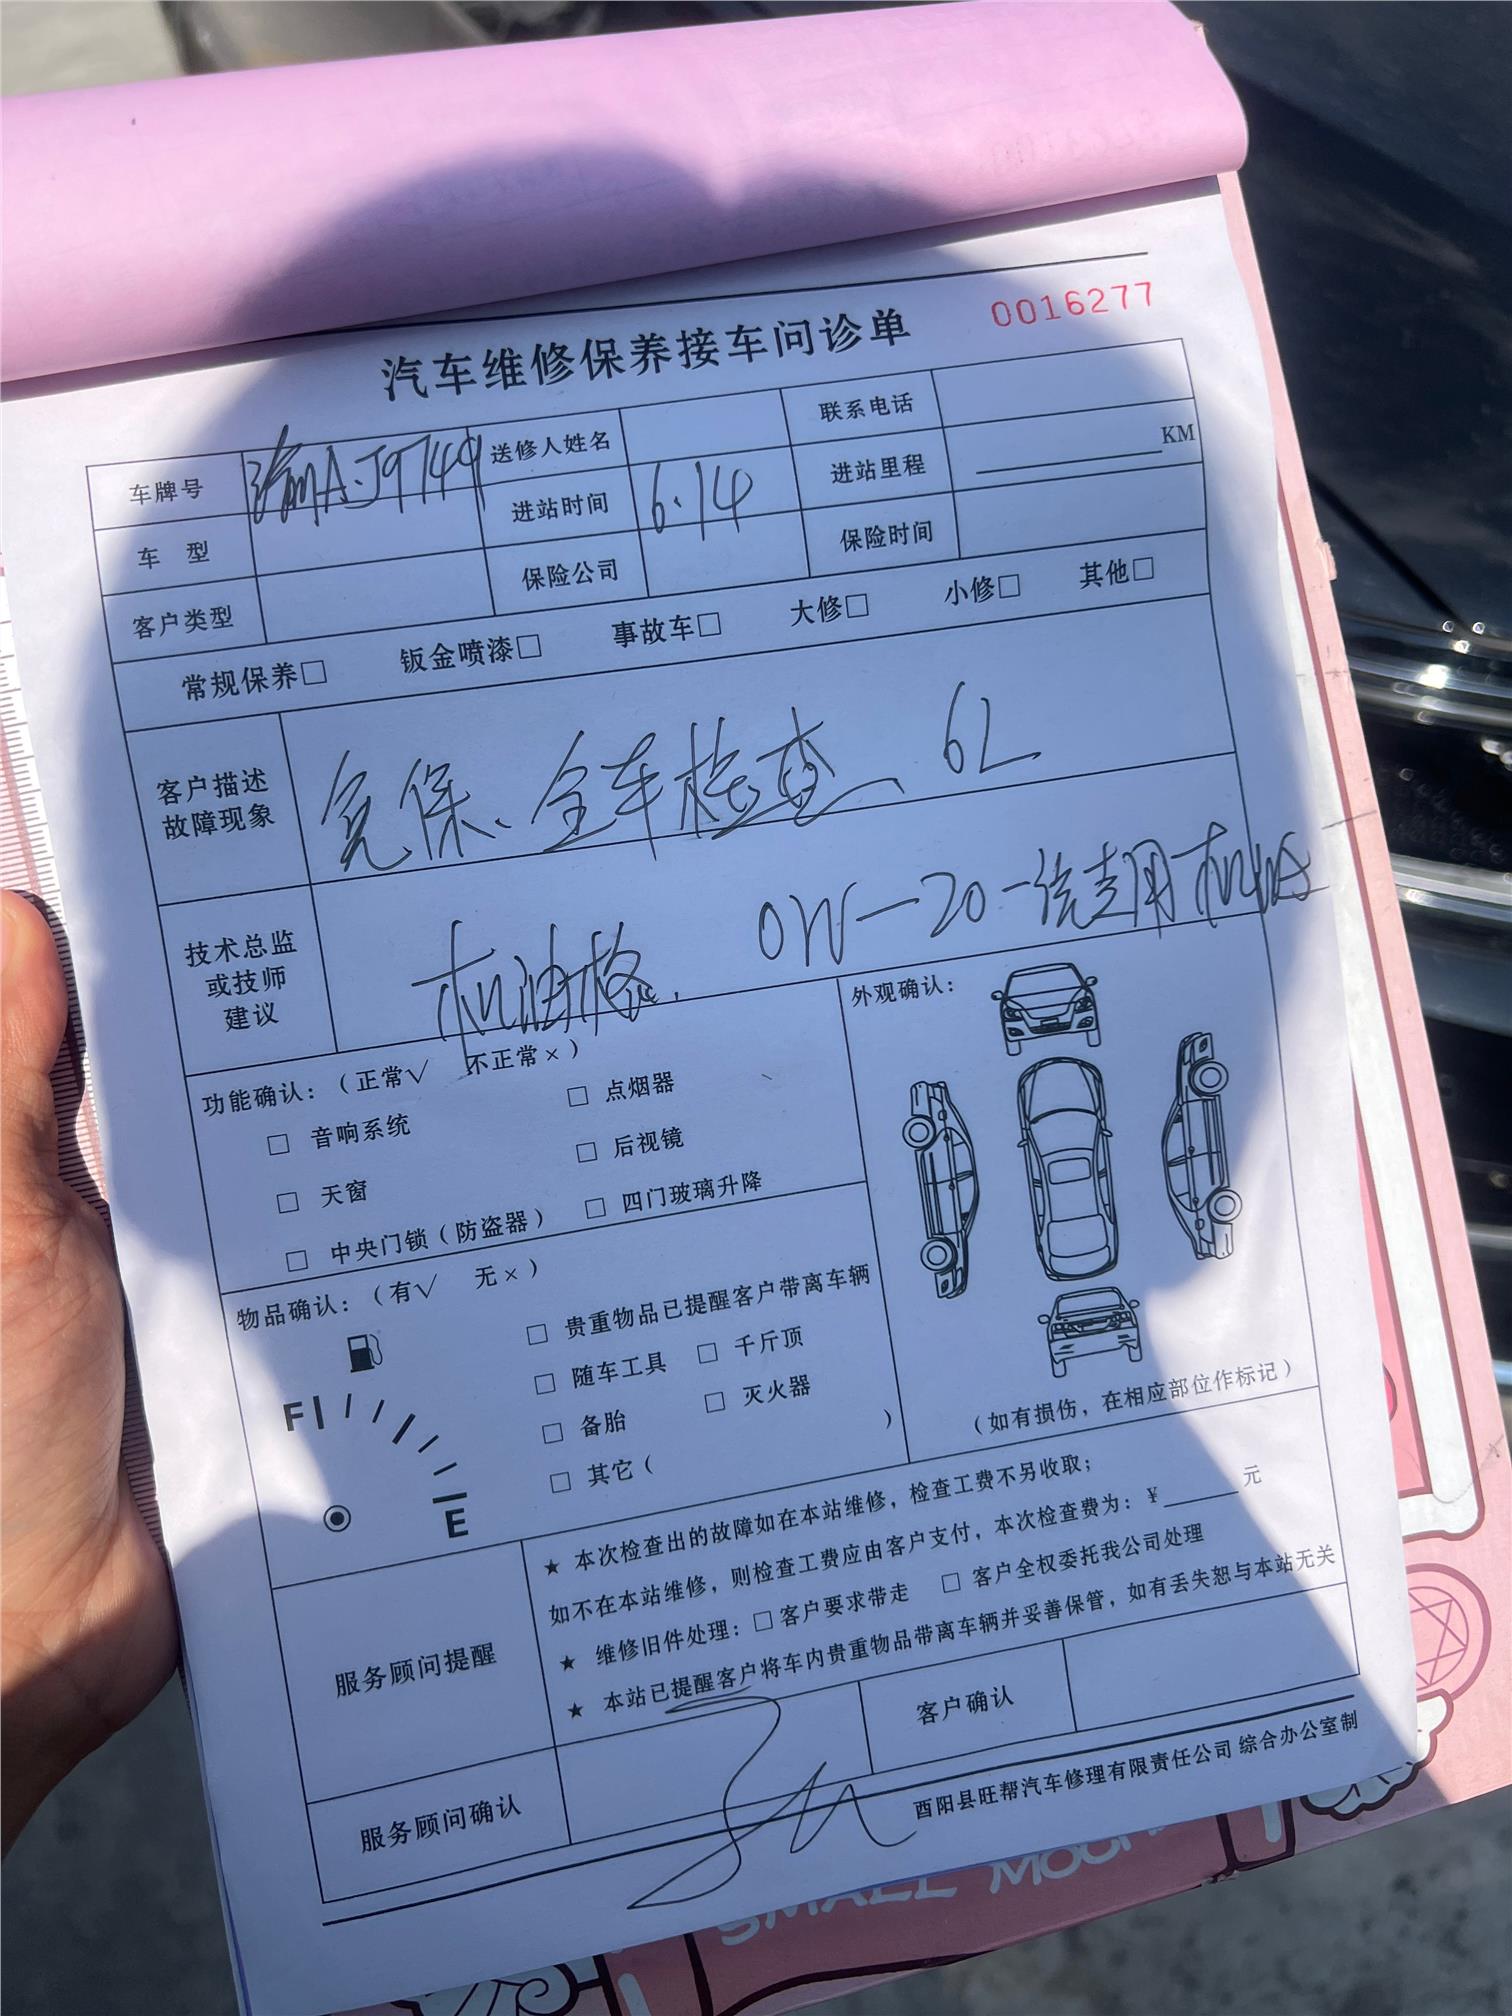 0016277
汽车维修保养接车问诊单
车牌号 渝A·J9749 送修人姓名 联系电话
车 型 进站时间 6.14 进站里程 KM
客户类型 保险公司 保险时间
常规保养□ 钣金喷漆□ 事故车□ 大修□ 小修□ 其他□
客户描述
故障现象
免保、全车检查、6L
技术总监
或技师
建议
机油格. 0W-20一汽专用机油
功能确认：（正常√ 不正常×）
□ 音响系统 □ 点烟器
□ 天窗 □ 后视镜
□ 中央门锁（防盗器） □ 四门玻璃升降
外观确认：
（如有损伤，在相应部位作标记）
物品确认：（有√ 无×）
□ 贵重物品已提醒客户带离车辆
□ 随车工具 □ 千斤顶
□ 备胎 □ 灭火器
□ 其它（ ）
F
E
服务顾问提醒
★ 本次检查出的故障如在本站维修，检查工费不另收取；
如不在本站维修，则检查工费应由客户支付，本次检查费为：¥ 元
★ 维修旧件处理：□ 客户要求带走 □ 客户全权委托我公司处理
★ 本站已提醒客户将车内贵重物品带离车辆并妥善保管，如有丢失恕与本站无关
服务顾问确认 客户确认
酉阳县旺帮汽车修理有限责任公司 综合办公室制
SMALL MOON